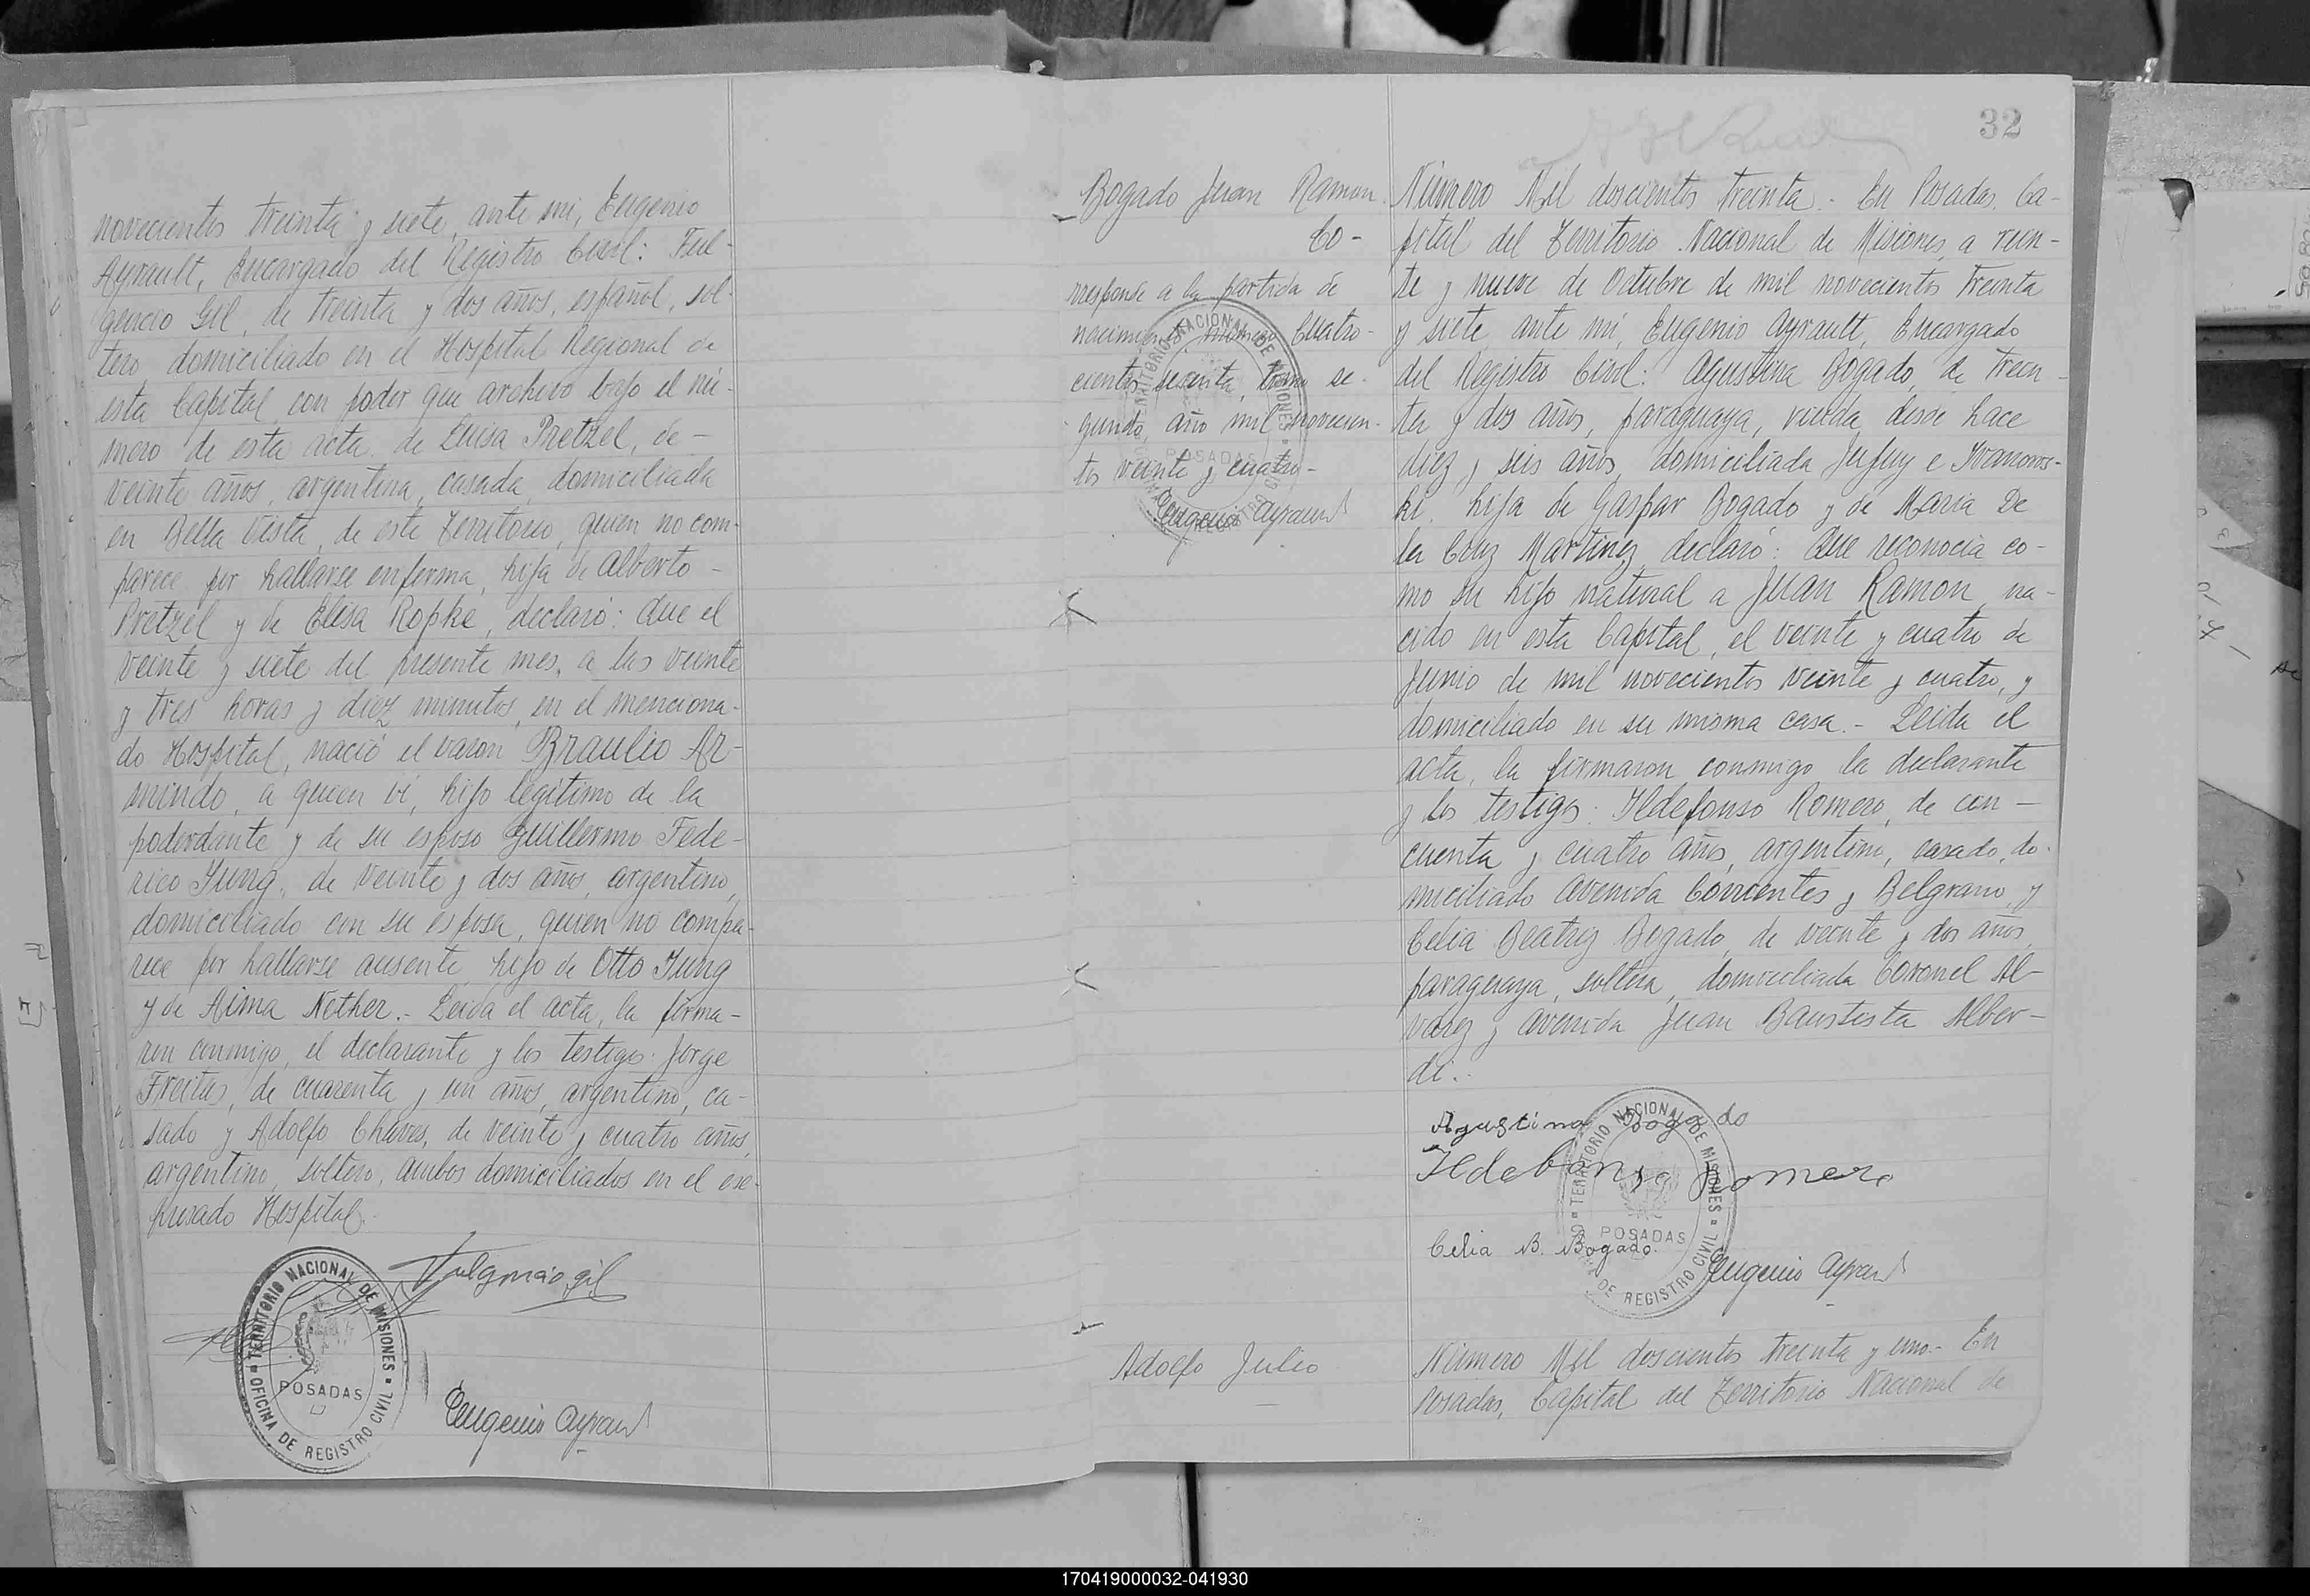 novecientos treinta y siete, ante mi, Eugenio
Ayrault, Encargado del Registro Civil: Ful-
gencio Gil, de treinta y dos años, español, sol-
tero domiciliado en el Hospital Regional de
esta Capital, con poder que archivo bajo el nú-
mero de esta acta, de Luisa Pretzel, de -
veinte años, argentina, casada, domiciliada
en Bella Vista, de este Territorio, quien no com-
parece por hallarse enferma, hija de Alberto -
Pretzel y de Elisa Ropke, declaró: Que el
veinte y siete del presente mes, a las veinte
y tres horas y diez minutos, en el menciona-
do Hospital, nació el varon Braulio Ar-
mindo, a quien vi, hijo legítimo de la
poderdante y de su esposo Guillermo Fede-
rico Jung, de veinte y dos años, argentino,
domiciliado con su esposa, quien no compa-
rece por hallarse ausente, hijo de Otto Jung
y de Aima Nether.- Leida el acta, la firma-
ron conmigo, el declarante y los testigos: Jorge
Freitas, de cuarenta y un años, argentino, ca-
sado y Adolfo Chaves, de veinte y cuatro años,
argentino, soltero, ambos domiciliados en el ex-
presado Hospital.
Fulgencio Gil
TERRITORIO NACIONAL DE MISIONES
POSADAS
OFICINA DE REGISTRO CIVIL
Eugenio Ayrault
32
Bogado Juan Ramon
Co-
rresponde a la partida de
nacimiento número Cuatro-
cientos sesenta, tomo se-
gundo, año mil novecien-
tos veinte y cuatro-
Eugenio Ayrault
TERRITORIO NACIONAL DE MISIONES
POSADAS
Número Mil doscientos treinta.- En Posadas, Ca-
pital del Territorio Nacional de Misiones, a vein-
te y nueve de Octubre de mil novecientos treinta
y siete, ante mi, Eugenio Ayrault, Encargado
del Registro Civil: Agustina Bogado, de trein-
ta y dos años, paraguaya, viuda desde hace
diez y seis años, domiciliada Jujuy e Ivanows-
ki, hija de Gaspar Bogado y de Maria De
la Cruz Martinez, declaró: Que reconocia co-
mo su hijo natural a Juan Ramon, na-
cido en esta Capital, el veinte y cuatro de
Junio de mil novecientos veinte y cuatro, y
domiciliado en su misma casa.- Leida el
acta, la firmaron conmigo la declarante
y los testigos: Ildefonso Romero, de cin-
cuenta y cuatro años, argentino, casado, do-
miciliado Avenida Corrientes y Belgrano, y
Celia Beatriz Bogado, de veinte y dos años,
paraguaya, soltera, domiciliada Coronel Al-
varez y Avenida Juan Bautista Alber-
di.-
Agustina Bogado
Ildefonso Romero
Celia B. Bogado.
TERRITORIO NACIONAL DE MISIONES
POSADAS
OFICINA DE REGISTRO CIVIL
Eugenio Ayrault
Adolfo Julio
Número Mil doscientos treinta y uno.- En
Posadas, Capital del Territorio Nacional de
170419000032-041930